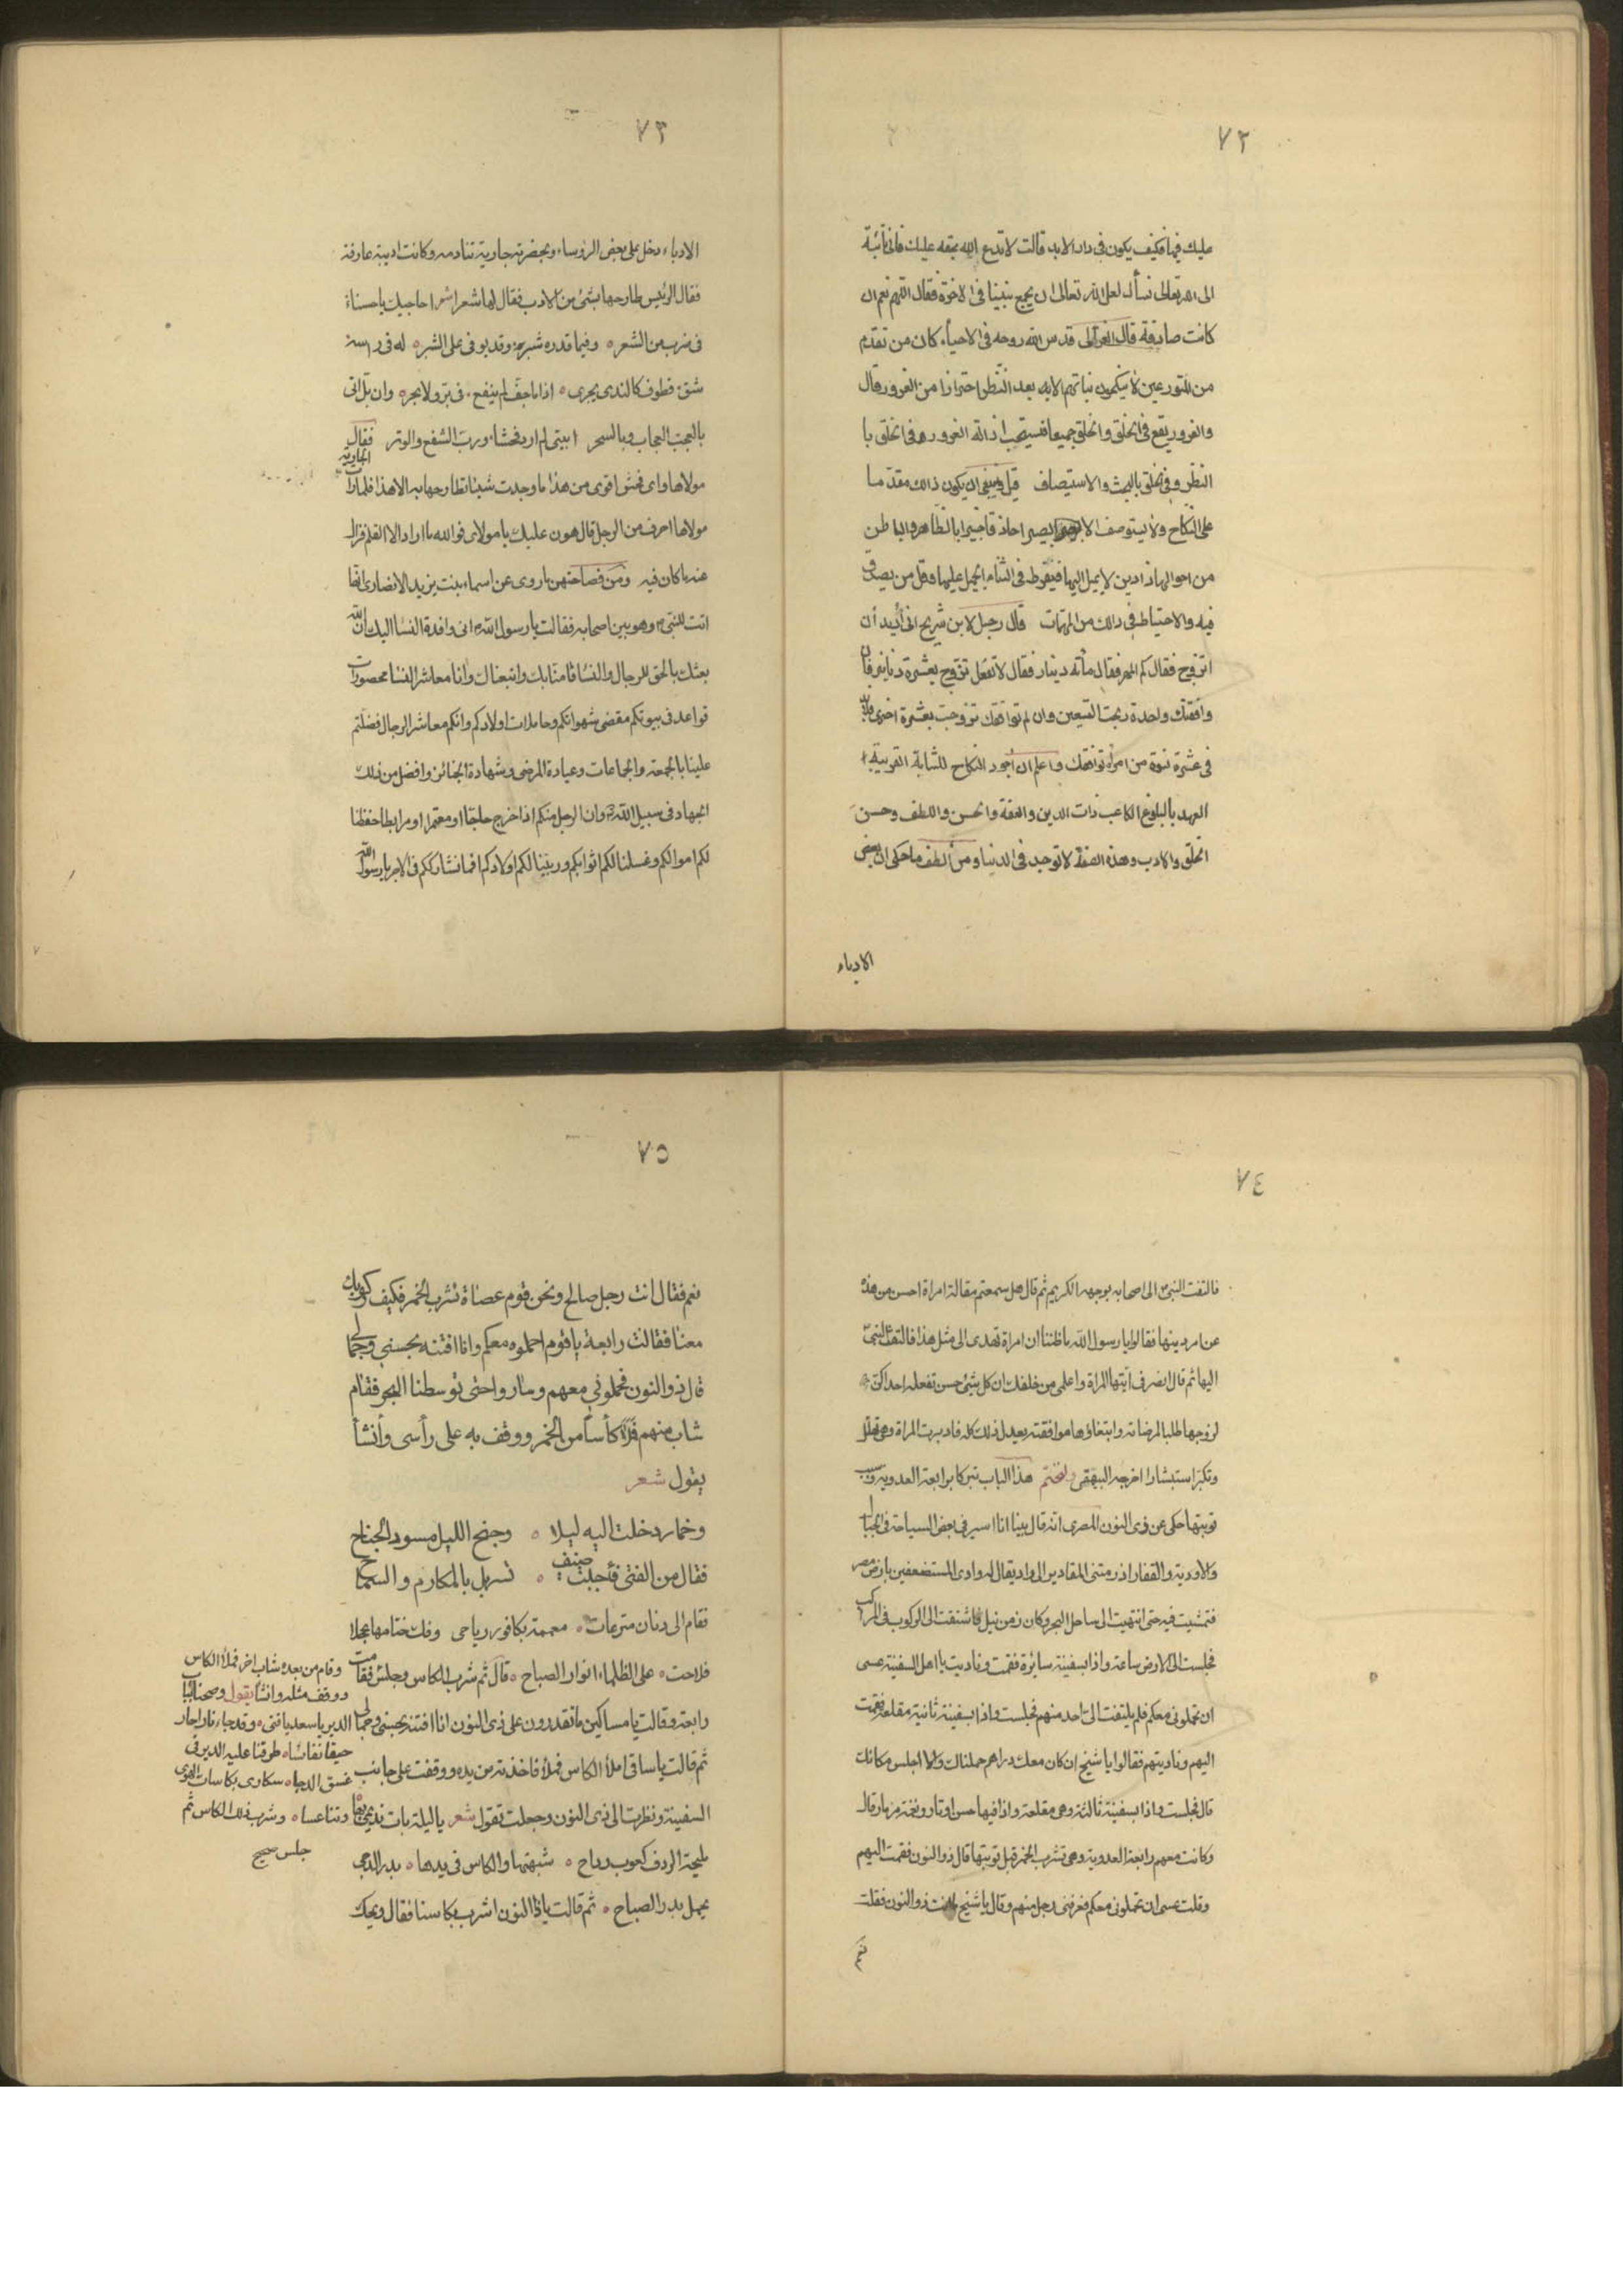 ٧٢
عليك فيها فكيف يكون في دار الابد قالت لا تدع الله بحقه عليك فاني تائبة
الى الله تعالى نسأل لعل الله تعالى ان يجمع بيننا في الاخرة فقال اللهم نعم ان
كانت صادقة قال الغزالى قدس الله روحه في الاحياء كان من تقدم
من المتورعين لا ينكحون بناتهم الا بعد النظر احترازا من الغرور وقال
والغرور يقع في الخلق والخلق جميعا فيستحب ازالة الغرور في الخلق با
النظر وفي الخلق بالبحث والاستيصاف قيل وينبغى ان يكون ذالك مقدما
على النكاح ولا يستوصف الا بصير احاذقا خبيرا بالظاهر والباطن
من احوالها ذا دين لا يميل اليها فيفرط في الثناء الجميل عليها وقل من يصدق
فيه والاحتياط في ذالك من المهمات قال رجل لابن شريح انى أريد أن
اتزوج فقال كم المهر فقال مأته دينار فقال لا تفعل تزوج بعشرة دنانير فان
وافقتك واحدة ربحت التسعين وان لم توافقك تزوجت بعشرة اخرى فلابد
في عشرة نسوة من امرأة توافقك واعلم ان اجود النكاح للشابة القريبة
العهد بالبلوغ الكاعب ذات الدين والعفة والحسن واللطف وحسن
الخلق والادب وهذه الصفة لا توجد في الدنيا ومن ألطف ما حكى ان بعض
الادباء
٧٣
الادباء دخل على بعض الروساء وبحضرته جارية تنادمه وكانت اديبة عارفة
فقال الرئيس طارحها بشئ من الادب فقال لها شعرا شعر احاجيك يا حسناء
في ضرب من الشعر ه وفيما قدره شبر وقد يوفى على الشبر ه له في راسه
شق قطوف كالندى يجرى ه اذا ما جف لم ينفع . في بر ولا بحر ه وان بل اتى
بالعجب العجاب وبالسحر ابيتى لم ارد فحشا ورب الشفع والوتر فقال
مولاها واى فحش اقوى من هذا ما وجدت شيئا تطارحها به الا هذا فلما رات الجارية
مولاها احرف من الرجل قال هون عليك يا مولاى فوالله ما اراد الا القلم فزال
عنه ما كان فيه ومن فصاحتهن ما روى عن اسماء بنت يزيد الانصارى انها
اتت للنبي وهو بين اصحابه فقالت يا رسول الله انى وافدة النسا اليك ان الله
بعثك بالحق للرجال والنسا فامنا بك واتبعناك وانا معاشر النسا محصورات
قواعد في بيوتكم مقضى شهواتكم وحاملات اولادكم وانكم معاشر الرجال فضلتم
علينا بالجمعة والجماعات وعيادة المرضى وشهادة الجنائز وافضل من ذلك
الجهاد في سبيل الله وان الرجل منكم اذا خرج حاجا او معتمرا او مرابطا حفظنا
لكم اموالكم وغسلنا لكم اثوابكم وربينا لكم اولادكم افما نشارككم في الاجر يا رسول الله
٧٤
فالتفت النبي الى اصحابه بوجهه الكريم ثم قال هل سمعتم مقالة امراة احسن من هذه
عن امر دينها فقالوا يا رسول الله ما ظننا ان امراة تهدى الى مثل هذا فالتفت النبي
اليها ثم قال انصرف ايتها المراة واعلمى من خلفك ان كل شيئ حسن تفعله احداكن
لزوجها طلبا لمرضاته وابتغاؤها موافقته يعدل ذلك كله فادبرت المراة وهي تهلل
وتكبر استبشارا اخرجه البيهقى ولنختم هذا الباب تبركا برابعة العدوية وسبب
توبتها حكى عن ذى النون المصرى انه قال بينا انا اسير في بعض السياحة في الجبال
والاودية والقفار اذ رمتنى المقادير الى واد يقال له وادى المستضعفين بارض مصر
فتمشيت فيه حتى انتهيت الى ساحل البحر وكان زمن نيل فاشتقت الى الركوب في المراكب
فجلست الى الارض ساعة واذا بسفينة سائرة فقمت وناديت يا اهل السفينة عسى
ان تحملونى معكم فلم يلتفت الى احد منهم فجلست واذا بسفينة ثانية مقلعة فقمت
اليهم وناديتهم فقالوا يا شيخ ان كان معك دراهم حملناك والا اجلس مكانك
قال فجلست واذا بسفينة ثالثة وهى مقلعة واذا فيها حس اوتار ونغمة مزمار قال
وكانت معهم رابعة العدوية وهى تشرب الخمر قبل توبتها قال ذو النون فقمت اليهم
وقلت عسى ان تحملونى معكم فعرفنى رجل منهم وقال يا شيخ انت ذو النون فقلت
نعم
٧٥
نعم فقال انت رجل صالح ونحن قوم عصاة نشرب الخمر فكيف ركوبك
معنا فقالت رابعة يا قوم احملوه معكم وانا افتنه بحسني وجمالي
قال ذو النون فحملوني معهم وسار واحتى توسطنا البحر فقام
شاب منهم فملأ كأسا من الخمر ووقف به على رأسى وأنشأ
يقول شعر
وخمار دخلت اليه ليلا ه وجنح الليل مسود الجناح
فقال من الفتى فأجبت ضيف ه تسربل بالمكارم والسماح
فقام الى دنان مترعات ه معممة بكافور رياحى وفك ختامها عجلا
فلاحت ه على الظلماء انوار الصباح ه قال ثم شرب الكاس وجلس فقامت
رابعة وقالت يا مساكين ما تقدرون على ذى النون انا افتنه بحسنى وجمالى
ثم قالت يا ساقى املأ الكاس فملأ فاخذته من يده ووقفت على جانب
السفينة ونظرت الى ذى النون وجعلت تقول شعر يا ليلة بات نديمى بها
مليحة الردف كعوب رداح ه شبهتها والكاس في يدها ه بدر الدجى
يحمل بدر الصباح ه ثم قالت يا ذا النون اشرب بكاسنا فقال ويحك
وقام من بعده شاب اخر فملأ الكاس
ووقف مثله وانشأ يقول وصحنا بباب
الدير يا سعد يا فتى ه وقد جاء نار احار
حيقا نفاشاه طرقنا عليه الدير في
غسق الدجا ه سكارى بكاسات الهوى
وتناعسا ه وشرب ذلك الكاس ثم
جلس صحيح